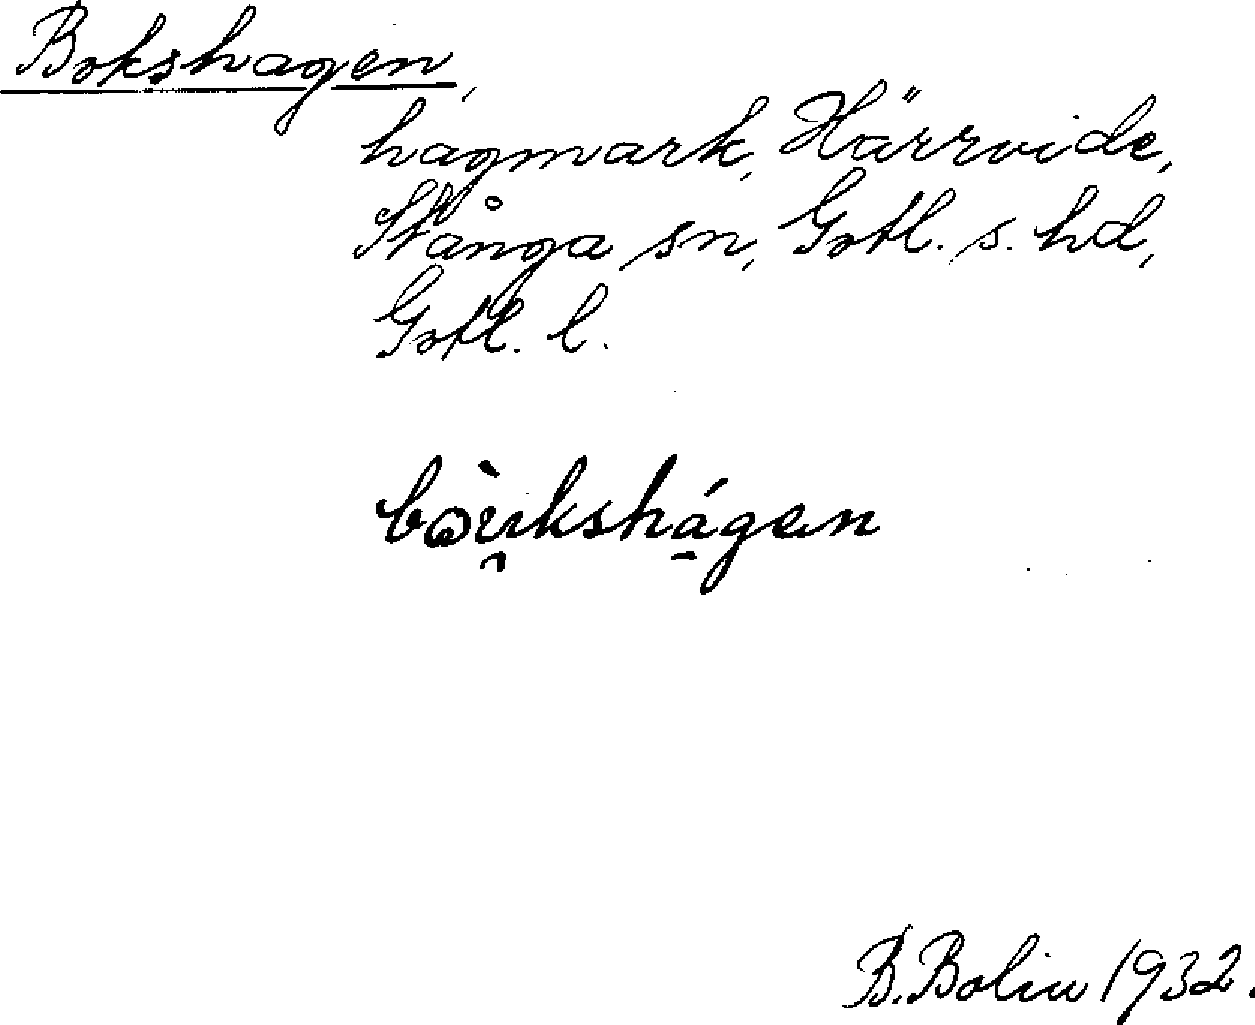 Bokshagen,
hagmark, Härrvide,
Stånga sn, Gotl. s. hd,
Gotl. l.
bɷ̀u̯kshá̱gan
B. Bolin 1932.